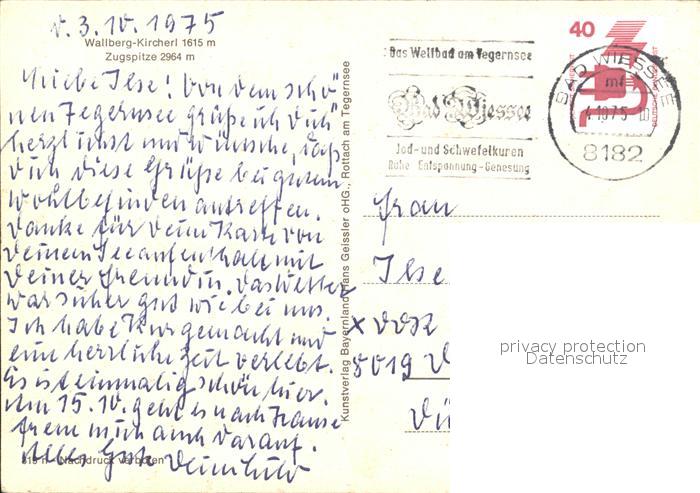 d. 3.10.1975
Wallberg-Kircherl 1615 m
Zugspitze 2964 m
Liebe Ilse! Von dem schö
nen Tegernsee grüße ich Dich
herzlichst und wünsche, daß
Dich diese Grüße bei gutem
Wohlbefinden antreffen.
Danke für Deine Karte von
Deinem Seeaufenthalt mit
Deiner Freundin. Das Wetter
war sicher gut wie bei uns.
Ich habe Kur gemacht und
eine herrliche Zeit verlebt.
Es ist einmalig schön hier.
Am 15.10. geht es nach Hause
freue mich auch darauf.
Alles Gute Dein
Nachdruck verboten
Kunstverlag Bayernland Hans Geissler oHG., Rottach am Tegernsee
Das Weltbad am Tegernsee
Bad Wiessee
Jod- und Schwefelkuren
Ruhe - Entspannung - Genesung
40
BAD WIESSEE
mf
8182
Frau
Ilse
x DDR
8019 D
privacy protection
Datenschutz